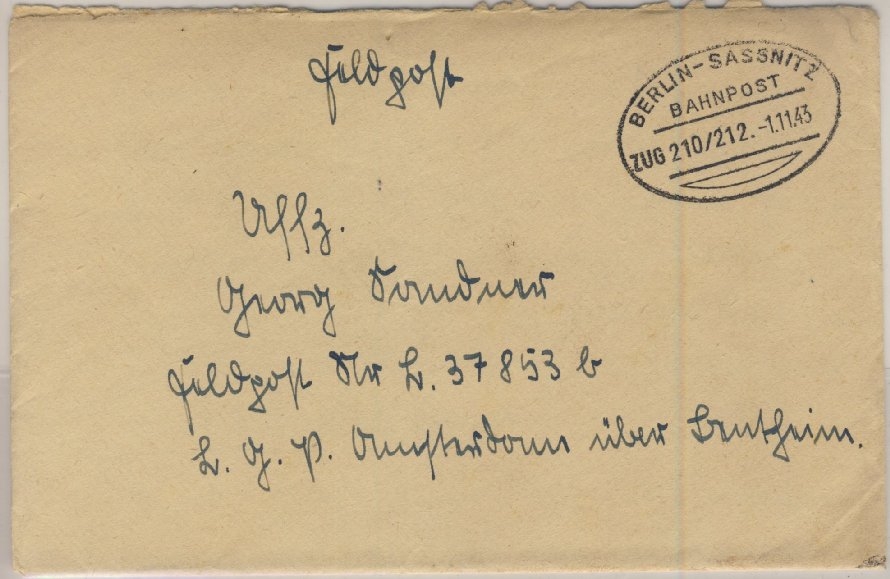 Feldpost
BERLIN-SASSNITZ
BAHNPOST
ZUG 210/212.-1.11.43
Uffz.
Georg Sandner
Feldpost Nr L. 37853 b
L. G. P. Amsterdam über Bentheim.